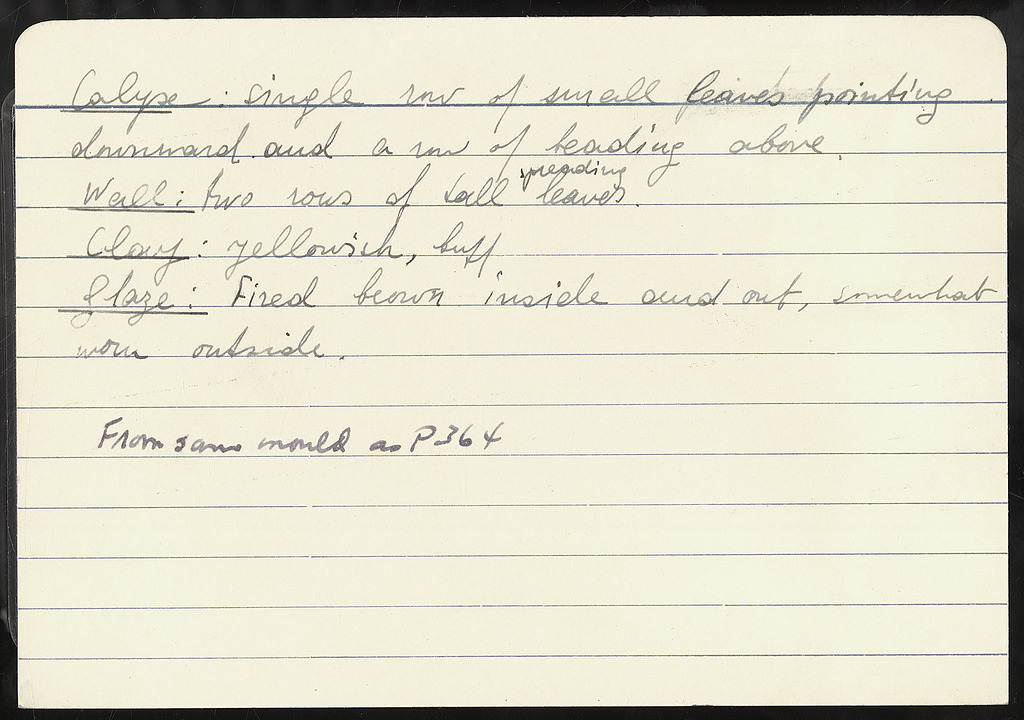 Calyx : single row of small leaves pointing
downward and a row of beading above.
Wall : two rows of tall spreading leaves.
Clay : yellowish, buff
Glaze : Fired brown inside and out, somewhat
worn outside.
From same mould as P 364